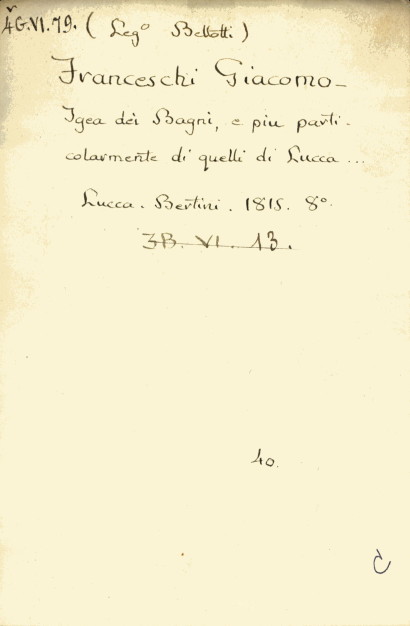 4G.VI.79. (Leg° Bellotti)
Franceschi Giacomo-
Igea dei Bagni, e più parti-
colarmente di quelli di Lucca ...
Lucca. Bertini. 1815. 8°.
3B. VI. 13.
40.
C